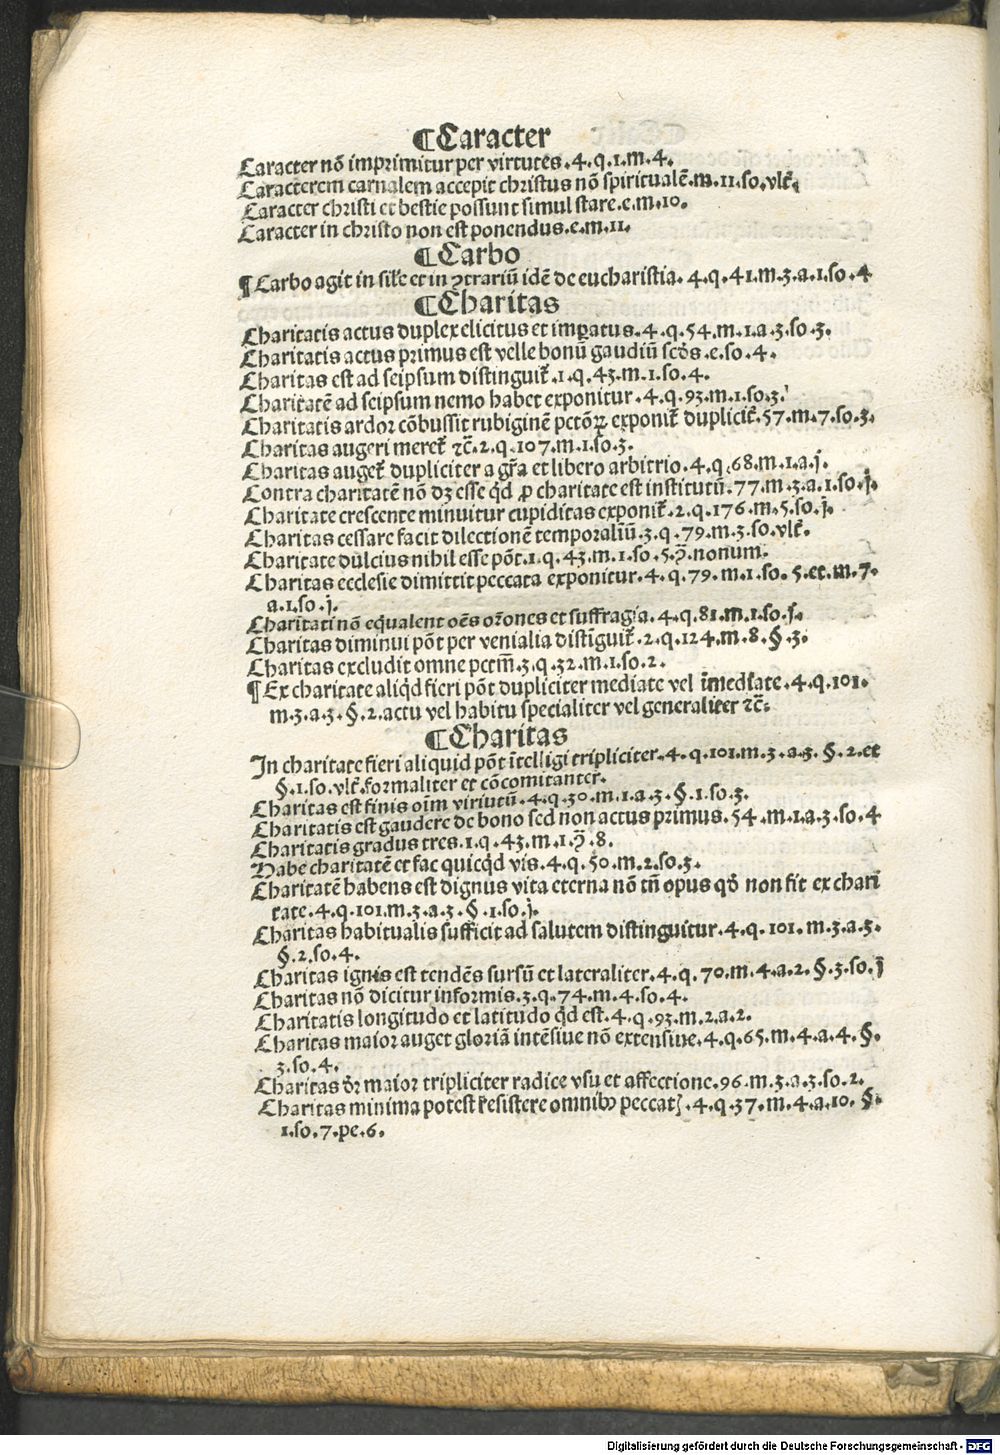 ¶Caracter
Caracter nō imprimitur per virtutes.4.q.1.m.4.
Caracterem carnalem accepit christus nō spiritualē.m.11.so.vlt̄.
Caracter christi et bestie possunt simul stare.e.m.10.
Caracter in christo non est ponendus.e.m.11.
¶Carbo
¶Carbo agit in sil̄e et in ꝯtrariū idē de eucharistia.4.q.41.m.3.a.1.so.4
¶Charitas
Charitatis actus duplex elicitus et imꝑatus.4.q.54.m.1.a.3.so.3.
Charitatis actus primus est velle bonū gaudiū scd̄s.e.so.4.
Charitas est ad seipsum distinguit̄.1.q.43.m.1.so.4.
Charitatē ad seipsum nemo habet exponitur.4.q.93.m.1.so.3.
Charitatis ardor cōbussit rubiginē pctōꝝ exponit̄ duplicit̄.57.m.7.so.3.
Charitas augeri meret̄ ⁊c̄.2.q.107.m.1.so.3.
Charitas auget̄ dupliciter a gr̄a et libero arbitrio.4.q.68.m.1.a.j.
Contra charitatē nō dꝫ esse qd̄ ꝓ charitate est institutū.77.m.3.a.1.so.j.
Charitate crescente minuitur cupiditas exponit̄.2.q.176.m.5.so.j.
Charitas cessare facit dilectionē temporaliū.3.q.79.m.3.so.vlt̄.
Charitate dulcius nihil esse pōt.1.q.43.m.1.so.5.ꝙ̄.nonum.
Charitas ecclesie dimittit peccata exponitur.4.q.79.m.1.so.5.et.m.7.
a.1.so.j.
Charitati nō eq̇ualent oēs or̄ones et suffragia.4.q.81.m.1.so.j.
Charitas diminui pōt per venialia distīguit̄.2.q.124.m.8.§.3.
Charitas excludit omne pctm̄.3.q.32.m.1.so.2.
¶Ex charitate aliq̇d fieri pōt dupliciter mediate vel īmediate.4.q.101.
m.3.a.3.§.2.actu vel habitu specialiter vel generaliter ⁊c̄.
¶Charitas
In charitate fieri aliquid pōt ītelligi tripliciter.4.q.101.m.3.a.3.§.2.et
§.1.so.vlt̄.formaliter et cōcomitanter.
Charitas est finis oīm virtutū.4.q.30.m.1.a.3.§.1.so.3.
Charitatis est gaudere de bono sed non actus primus.54.m.1.a.3.so.4
Charitatis gradus tres.1.q.43.m.1.ꝙ̄.8.
Habe charitatē et fac quicq̇d vis.4.q.50.m.2.so.3.
Charitatē habens est dignus vita eterna nō tn̄ opus qd̄ non fit ex chari
tate.4.q.101.m.3.a.3.§.1.so.j.
Charitas habitualis sufficit ad salutem distinguitur.4.q.101.m.3.a.3.
§.2.so.4.
Charitas ignis est tendēs sursū et lateraliter.4.q.70.m.4.a.2.§.3.so.j
Charitas nō dicitur informis.3.q.74.m.4.so.4.
Charitatis longitudo et latitudo qd̄ est.4.q.93.m.2.a.2.
Charitas maior auget gloriā intēsiue nō extensiue.4.q.65.m.4.a.4.§.
3.so.4.
Charitas dr̄ maior tripliciter radice vsu et affectione.96.m.3.a.3.so.2.
Charitas minima potest resistere omnibꝰ peccatꝭ.4.q.37.m.4.a.10.§.
1.so.7.pe.6.
Digitalisierung gefördert durch die Deutsche Forschungsgemeinschaft - DFG